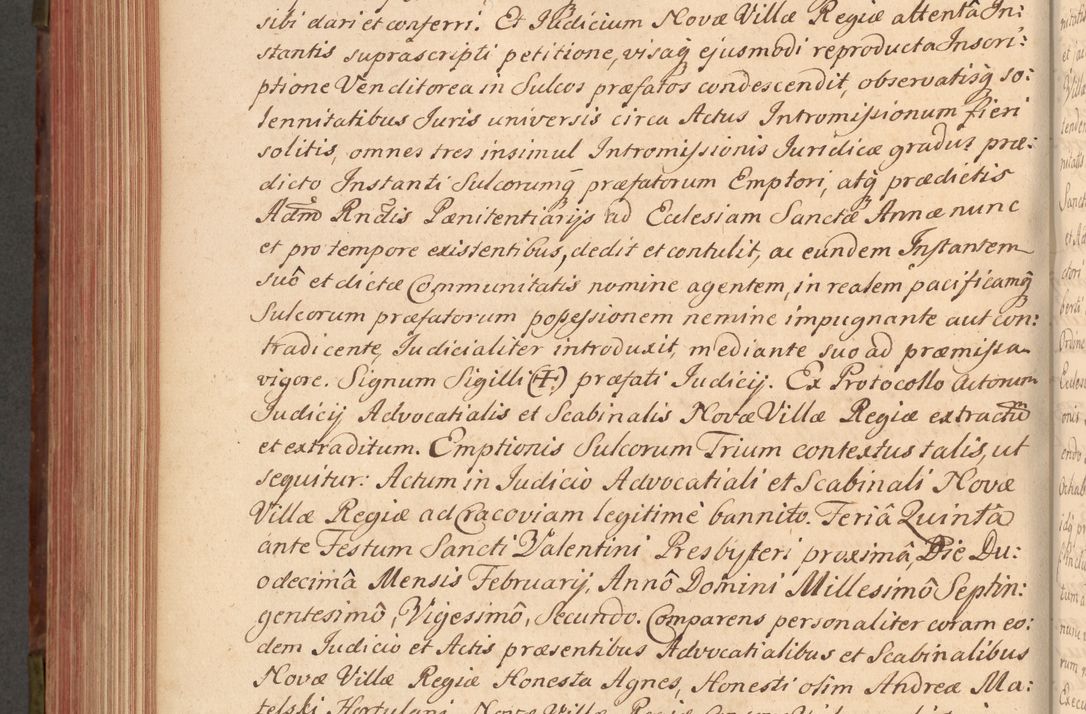 sibi dari et conferri. Et Iudicium Novæ Villæ Regiæ attentâ In:
stantis suprascripti petitione, visaq̃ ejusmodi reproducta Inscri:
ptione Venditorea in Sulcos præfatos condescendit, observatisq̃ so:
lennitatibus Juris universis circa Actus Intromissionum fieri
solitis, omnes tres insimul Intromissionis Iuridicæ gradus præ:
dicto Instanti Sulcorumq̃ præfatorum Emptori, atq̃ prædictis
Adm̃o Rndis Pænitentiarijs ad Ecclesiam Sanctæ Annæ nunc
et pro tempore existentibus, dedit et contulit, ac eundem Instantem
suô et dictæ Communitatis nomine agentem, in realem pacificamq̃
Sulcorum præfatorum possessionem nemine impugnante aut con:
tradicente, Iudicialiter introduxit, mediante suo ad præmissa
vigore. Signum Sigilli (✝) præfati Iudicij. Ex Protocollo Actorum
Iudicij Advocatialis et Scabinalis Novæ Villæ Regiæ extractũ
et extraditum. Emptionis Sulcorum Trium contextus talis, ut
sequitur: Actum in Iudicio Advocatiali et Scabinali Novæ
Villæ Regiæ ad Cracoviam legitimè bannito. Feriâ Quintâ
ante Festum Sancti Valentini Presbyteri proximâ, Die Du:
odecimâ Mensis Februarij, Annô Domini Millesimô Septin:
gentesimô, Vigesimô, Secundo. Comparens personaliter coram eo:
dem Iudicio et Actis præsentibus Advocatialibus et Scabinalibus
Novæ Villæ Regiæ Honesta Agnes, Honesti olim Andreæ Ma:
telski Hortulani